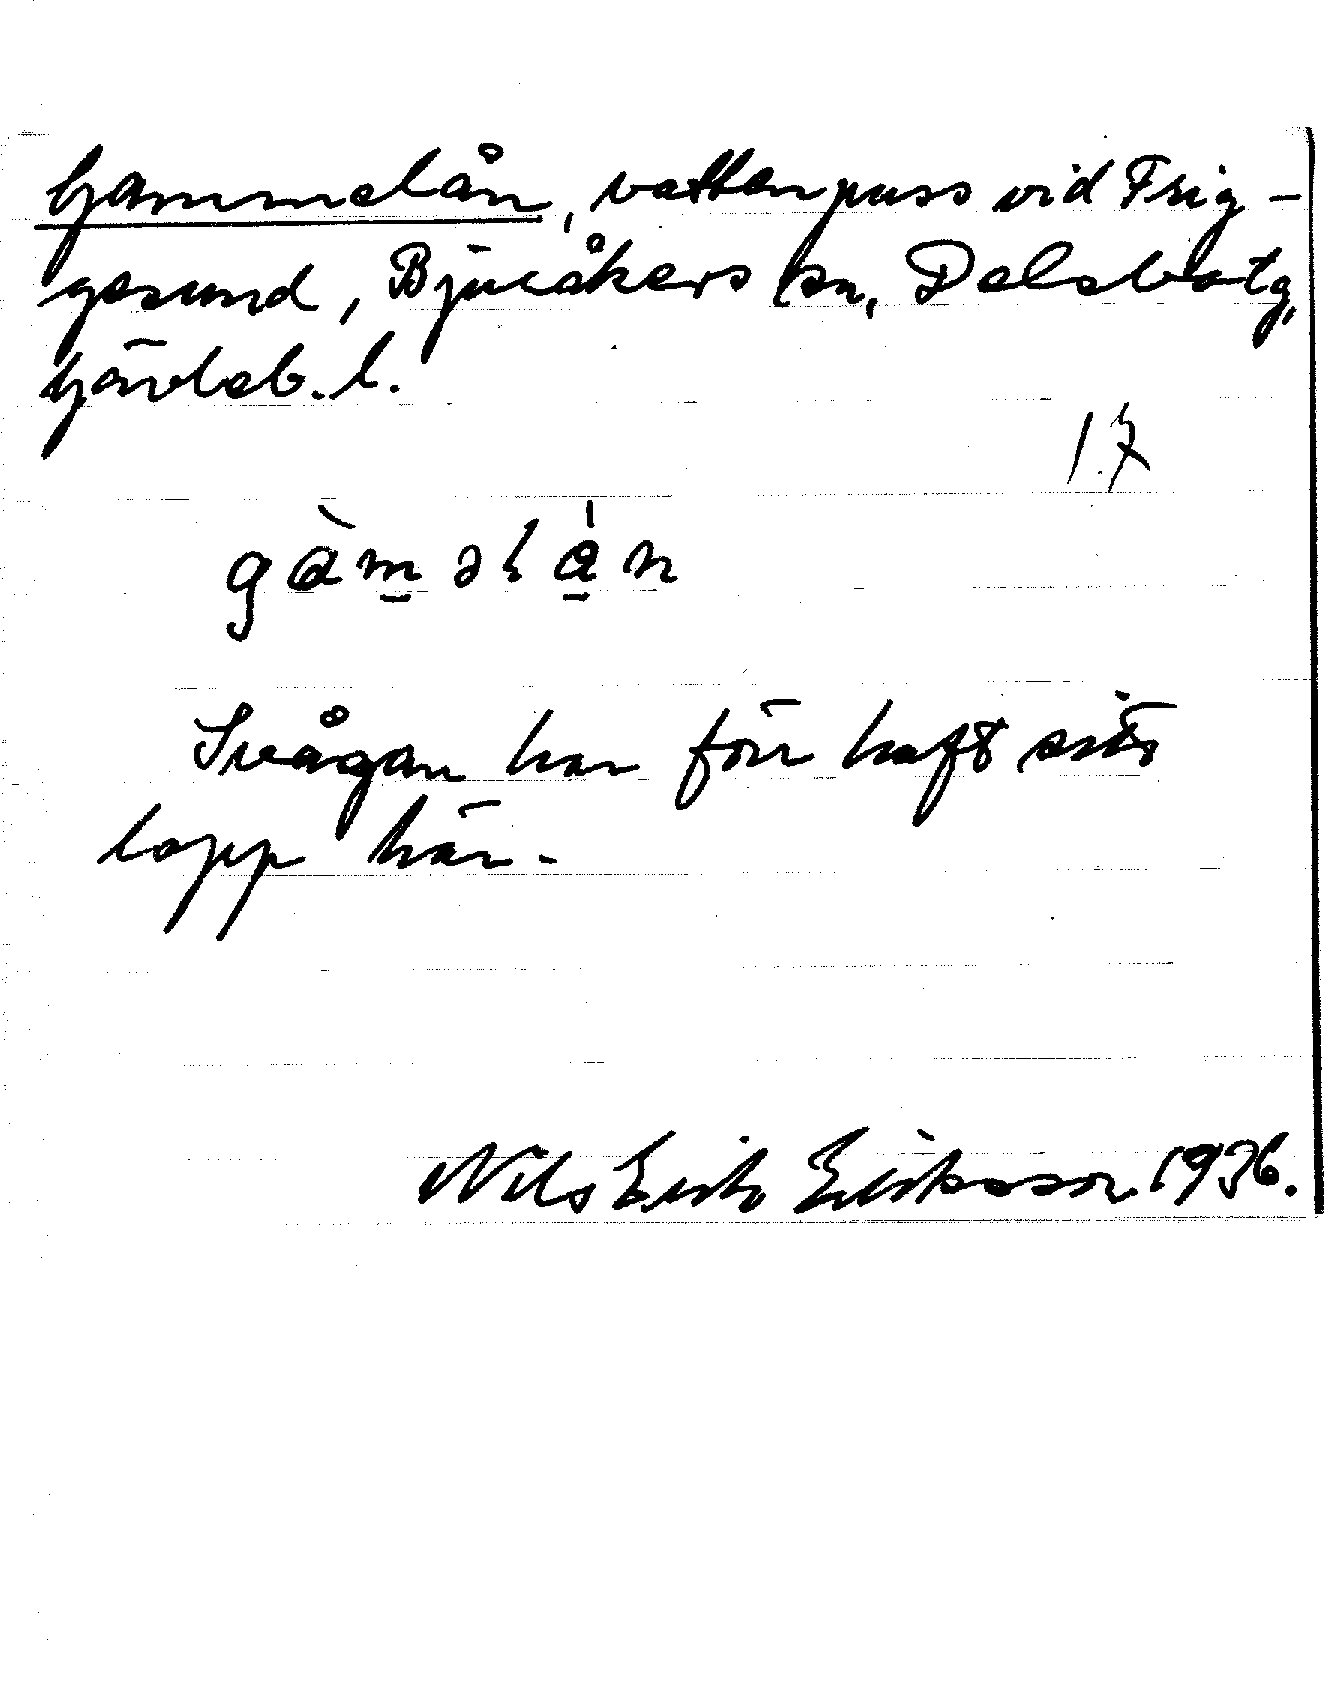 Gammelån, vattenpuss vid Frig-
gesund, Bjuråkers sn, Delsbo tg,
Gävleb. l.
1.7
gàm̲əlǻ̲n
Svågan har förr haft sitt
lopp här.
Nils Erik Eriksson 1936.